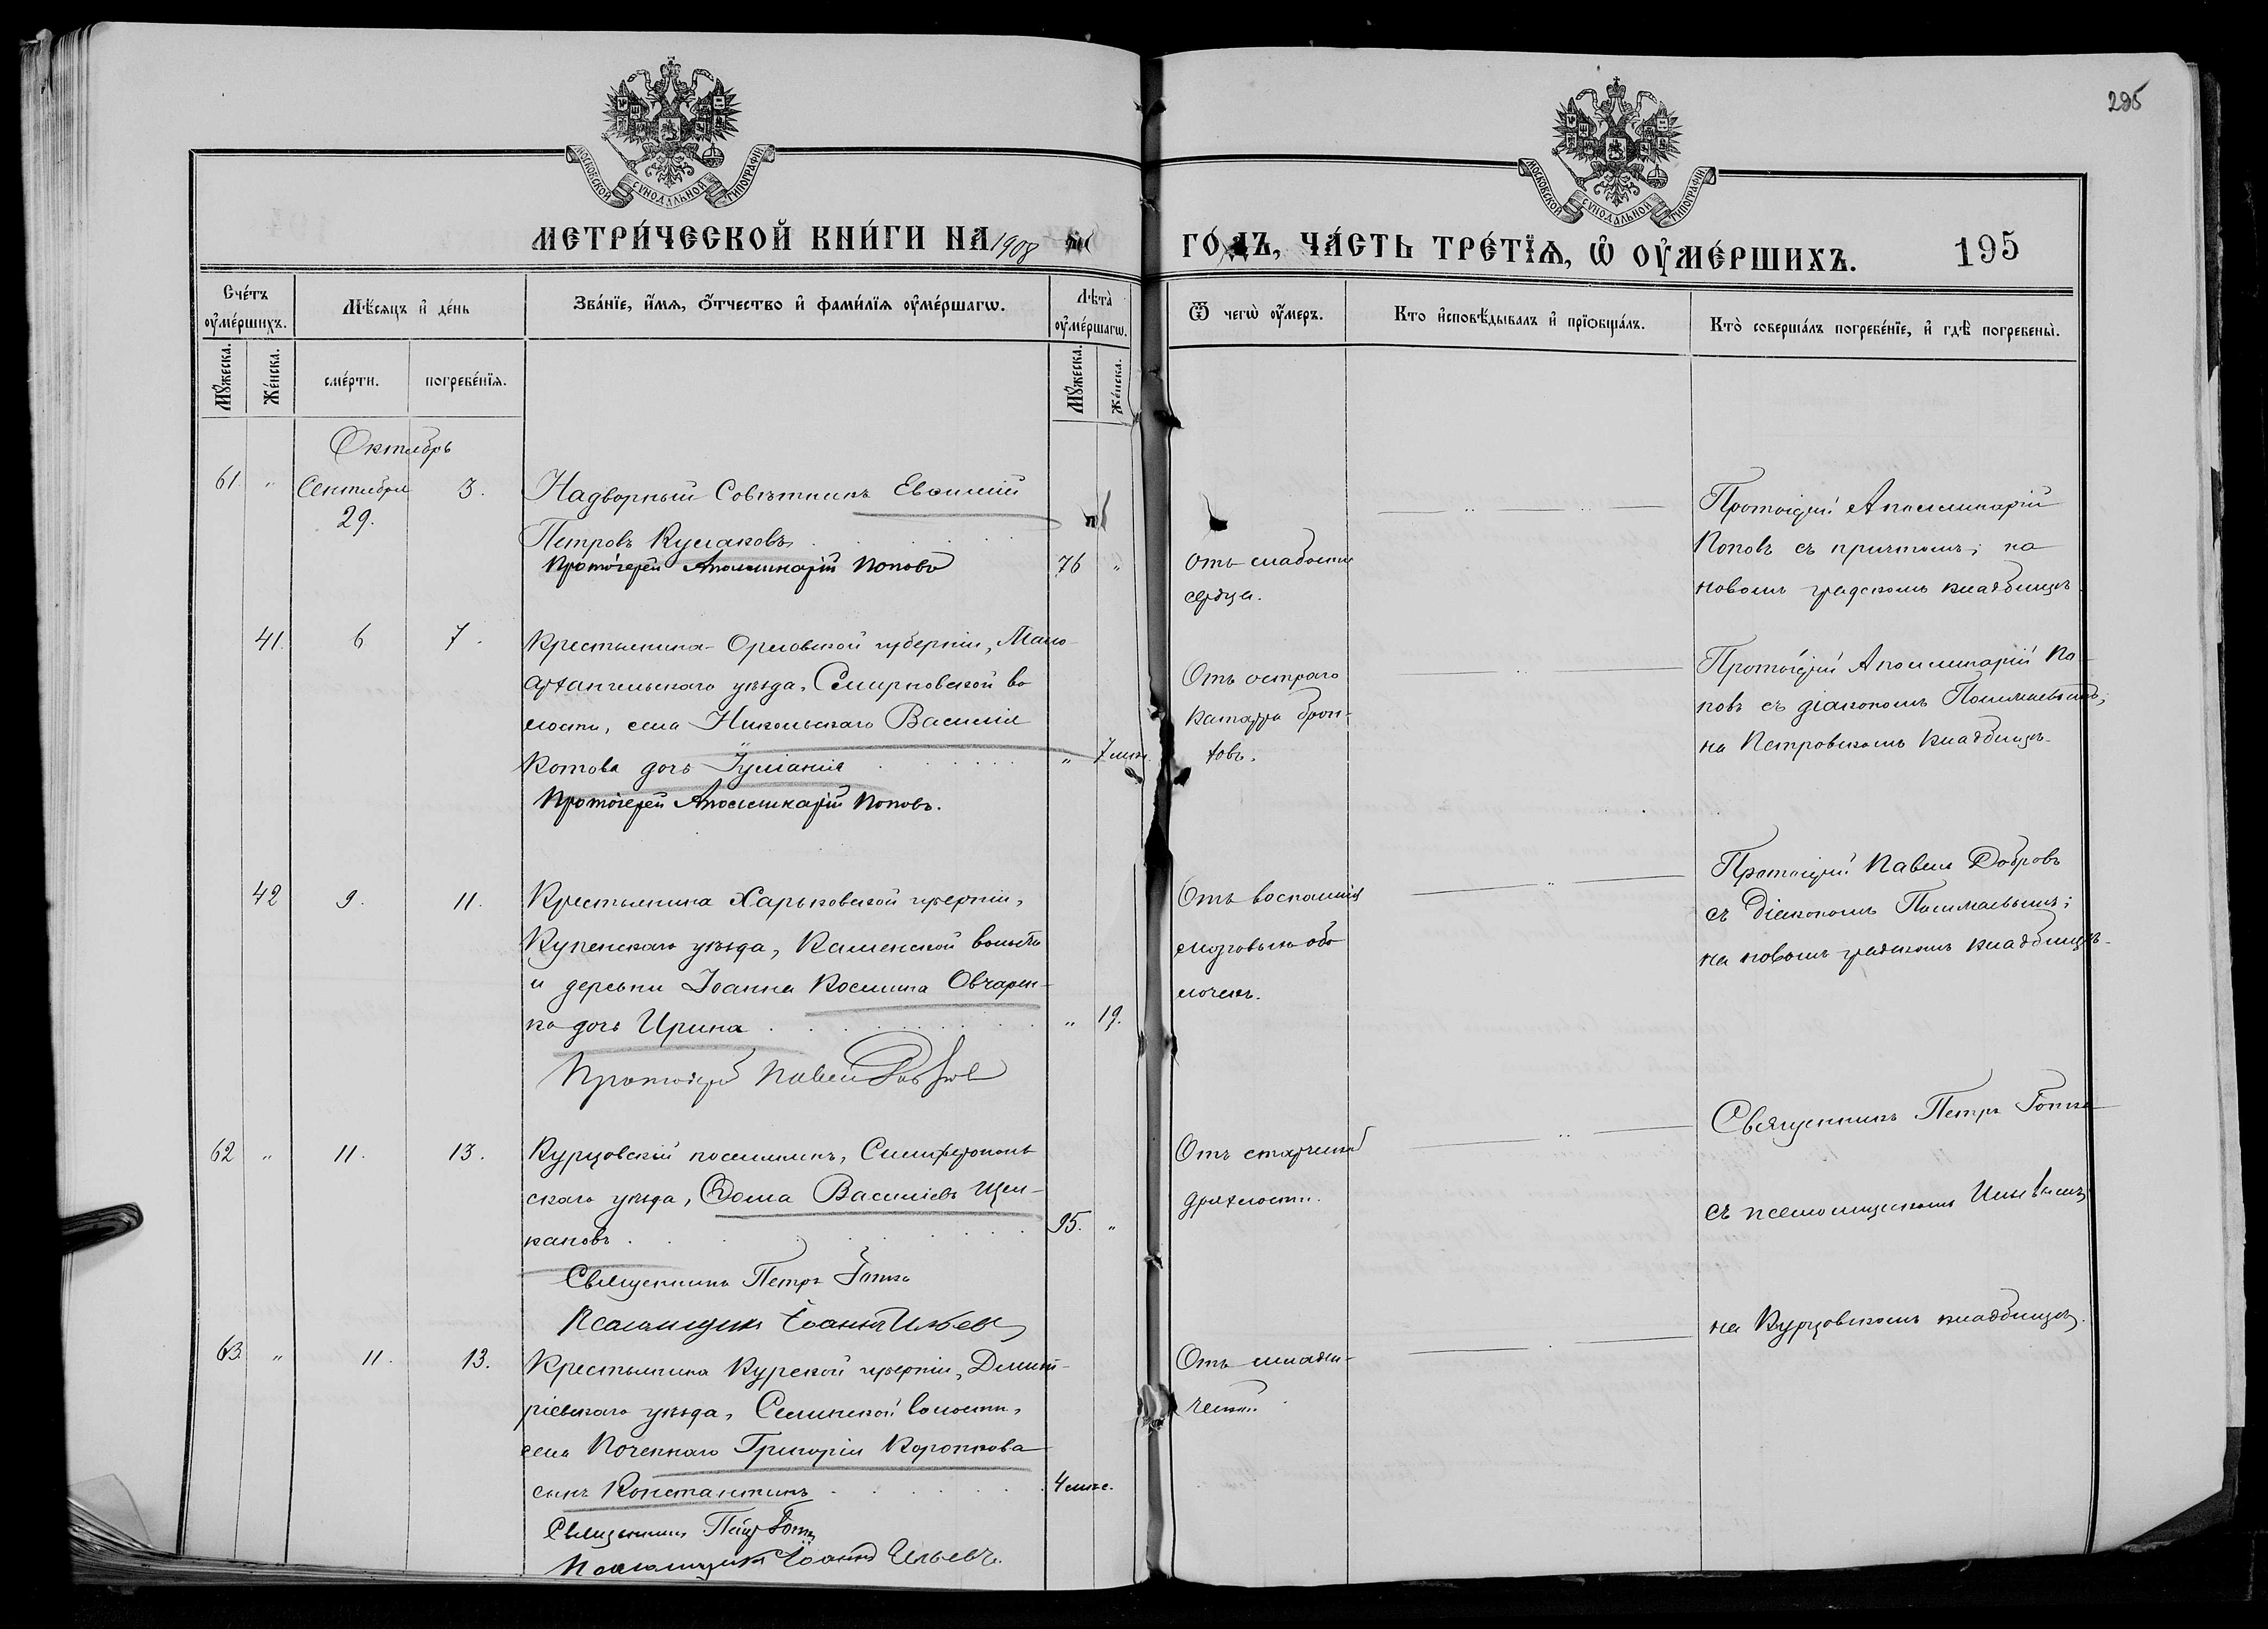 295
МОСКОВСКОЙ СѴНОДАЛЬНОЙ ТИПОГРАФІИ
МОСКОВСКОЙ СѴНОДАЛЬНОЙ ТИПОГРАФІИ
МЕТРИ́ЧЕСКОЙ КНИ́ГИ НА 1908
ГО́ДЪ, ЧА́СТЬ ТРЕ́ТЇѦ, Ѡ҆ ОУ҆МЕ́РШИХЪ.
195
Сче́тъ оу҆ме́ршихъ.
Мѣ́сяцъ и҆ де́нь
Зва́нїе, и҆́мѧ, ѻ҆́тчество и҆ фами́лїѧ оу҆ме́ршагѡ.
Лѣта̀ оу҆ме́ршагѡ.
Ѿ чегѡ̀ оу҆́меръ.
Кто и҆сповѣ́дывалъ и҆ прїѡбща́лъ.
Кто̀ соверша́лъ погребе́нїе, и҆ гдѣ̀ погребены̀.
Мꙋ́жеска.
Же́нска.
сме́рти.
погребе́нїѧ.
Мꙋ́жеска.
Же́нска.
Октябрь
61. " Сентября 29. 3.
Надворный Совѣтникъ Евѳимій
Петровъ Кулаковъ
Протоіерей Аполлинарій Поповъ
76 "
Отъ слабости
сердца.
Протоіерей Аполлинарій
Поповъ съ причтомъ; на
новомъ градскомъ кладбищѣ
41. 6 7.
Крестьянина Орловской губерніи, Мало-
архангельскаго уѣзда, Смирновской во
лости, села Никольскаго Василія
Котова дочь Іуліанія
" 7 мѣс.
Протоіерей Аполлинарій Поповъ.
Отъ остраго
катарра брон-
ховъ.
Протоіерей Аполлинарій По-
повъ съ діакономъ
на Петровскомъ кладбищѣ
42 9. 11.
Крестьянина Харьковской губерніи,
Купенскаго уѣзда, Каменской волости
и деревни Іоанна Космина Овчарен-
ко дочь Ирина
" 19.
Протоіерей Павелъ Добровъ
Отъ воспаленія
мозговыхъ обо
лочекъ.
Протоіерей Павелъ Добровъ
съ діакономъ
на новомъ градскомъ кладбищѣ
62 " 11. 13.
Курцовскій поселянинъ, Симферополь
скаго уѣзда, Ѳома Василіевъ Щел-
кановъ
95. "
Священникъ Петръ
Псаломщикъ Іоаннъ Ильевъ
Отъ старческой
дряхлости.
Священникъ Петръ
съ псаломщикомъ Ильевымъ
на Курцовскомъ кладбищѣ.
63. " 11. 13.
Крестьянина Курской губерніи, Димит-
ріевскаго уѣзда, Селинской волости,
села Поченнаго Григорія Коропкова
сынъ Константинъ
4 мѣс.
Священникъ Петръ
Псаломщикъ Іоаннъ Ильевъ.
Отъ младен-
ческой.